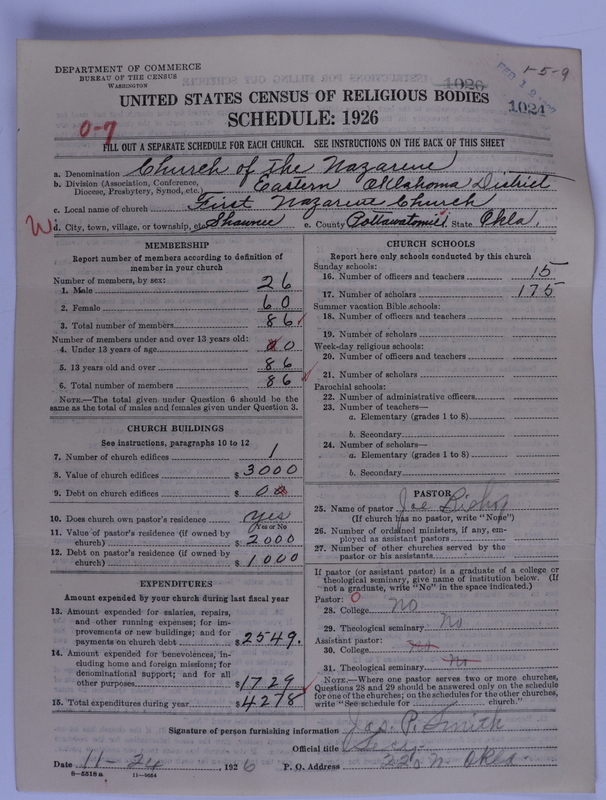 DEPARTMENT OF COMMERCE
BUREAU OF THE CENSUS
WASHINGTON
1-5-9
1024
UNITED STATES CENSUS OF RELIGIOUS BODIES
SCHEDULE: 1926
0-7
FILL OUT A SEPARATE SCHEDULE FOR EACH CHURCH. SEE INSTRUCTIONS ON THE BACK OF THIS SHEET
a. Denomination Church of the Nazarene
b. Division (Association, Conference, Diocese, Presbytery, Synod, etc.) Eastern Oklahoma District
c. Local name of church First Nazarene Church
W
d. City, town, village, or township, etc. Shawnee e. County Pottawatomie State Okla.
MEMBERSHIP
Report number of members according to definition of
member in your church
Number of members, by sex:
1. Male 26
2. Female 60
3. Total number of members 86
Number of members under and over 13 years old:
4. Under 13 years of age 0
5. 13 years old and over 86
6. Total number of members 86
NOTE.—The total given under Question 6 should be
same as the total of males and females given under Question 3.
CHURCH BUILDINGS
See instructions, paragraphs 10 to 12
7. Number of church edifices 1
8. Value of church edifices $ 3000
9. Debt on church edifices $ 00
10. Does church own pastor's residence yes
(Yes or No)
11. Value of pastor's residence (if owned by
church) $ 2000
12. Debt on pastor's residence (if owned by
church) $ 1000
EXPENDITURES
Amount expended by your church during last fiscal year
13. Amount expended for salaries, repairs,
and other running expenses; for im-
provements or new buildings; and for
payments on church debt $ 2549.
14. Amount expended for benevolences, in-
cluding home and foreign missions; for
denominational support; and for all
other purposes $ 1729
15. Total expenditures during year $ 4278
CHURCH SCHOOLS
Report here only schools conducted by this church
Sunday schools:
16. Number of officers and teachers 15
17. Number of scholars 175
Summer vacation Bible schools:
18. Number of officers and teachers
19. Number of scholars
Week-day religious schools:
20. Number of officers and teachers
21. Number of scholars
Parochial schools:
22. Number of administrative officers
23. Number of teachers—
a. Elementary (grades 1 to 8)
b. Secondary
24. Number of scholars—
a. Elementary (grades 1 to 8)
b. Secondary
PASTOR
25. Name of pastor Joe Bishop
(If church has no pastor, write "None")
26. Number of ordained ministers, if any, em-
ployed as assistant pastors
27. Number of other churches served by the
pastor or his assistants
If pastor (or assistant pastor) is a graduate of a college or
theological seminary, give name of institution below. (If
not a graduate, write "No" in the space indicated.)
Pastor: 0
28. College No
29. Theological seminary No
Assistant pastor:
30. College No
31. Theological seminary No
NOTE.—Where one pastor serves two or more churches,
Questions 28 and 29 should be answered only on the schedule
for one of the churches; on the schedules for the other churches,
write "See schedule for church."
Signature of person furnishing information Jas. P. Smith
Official title Secy.
Date 11-24 1926 P. O. Address 220 N. Okla.
8-5518a 11-9064